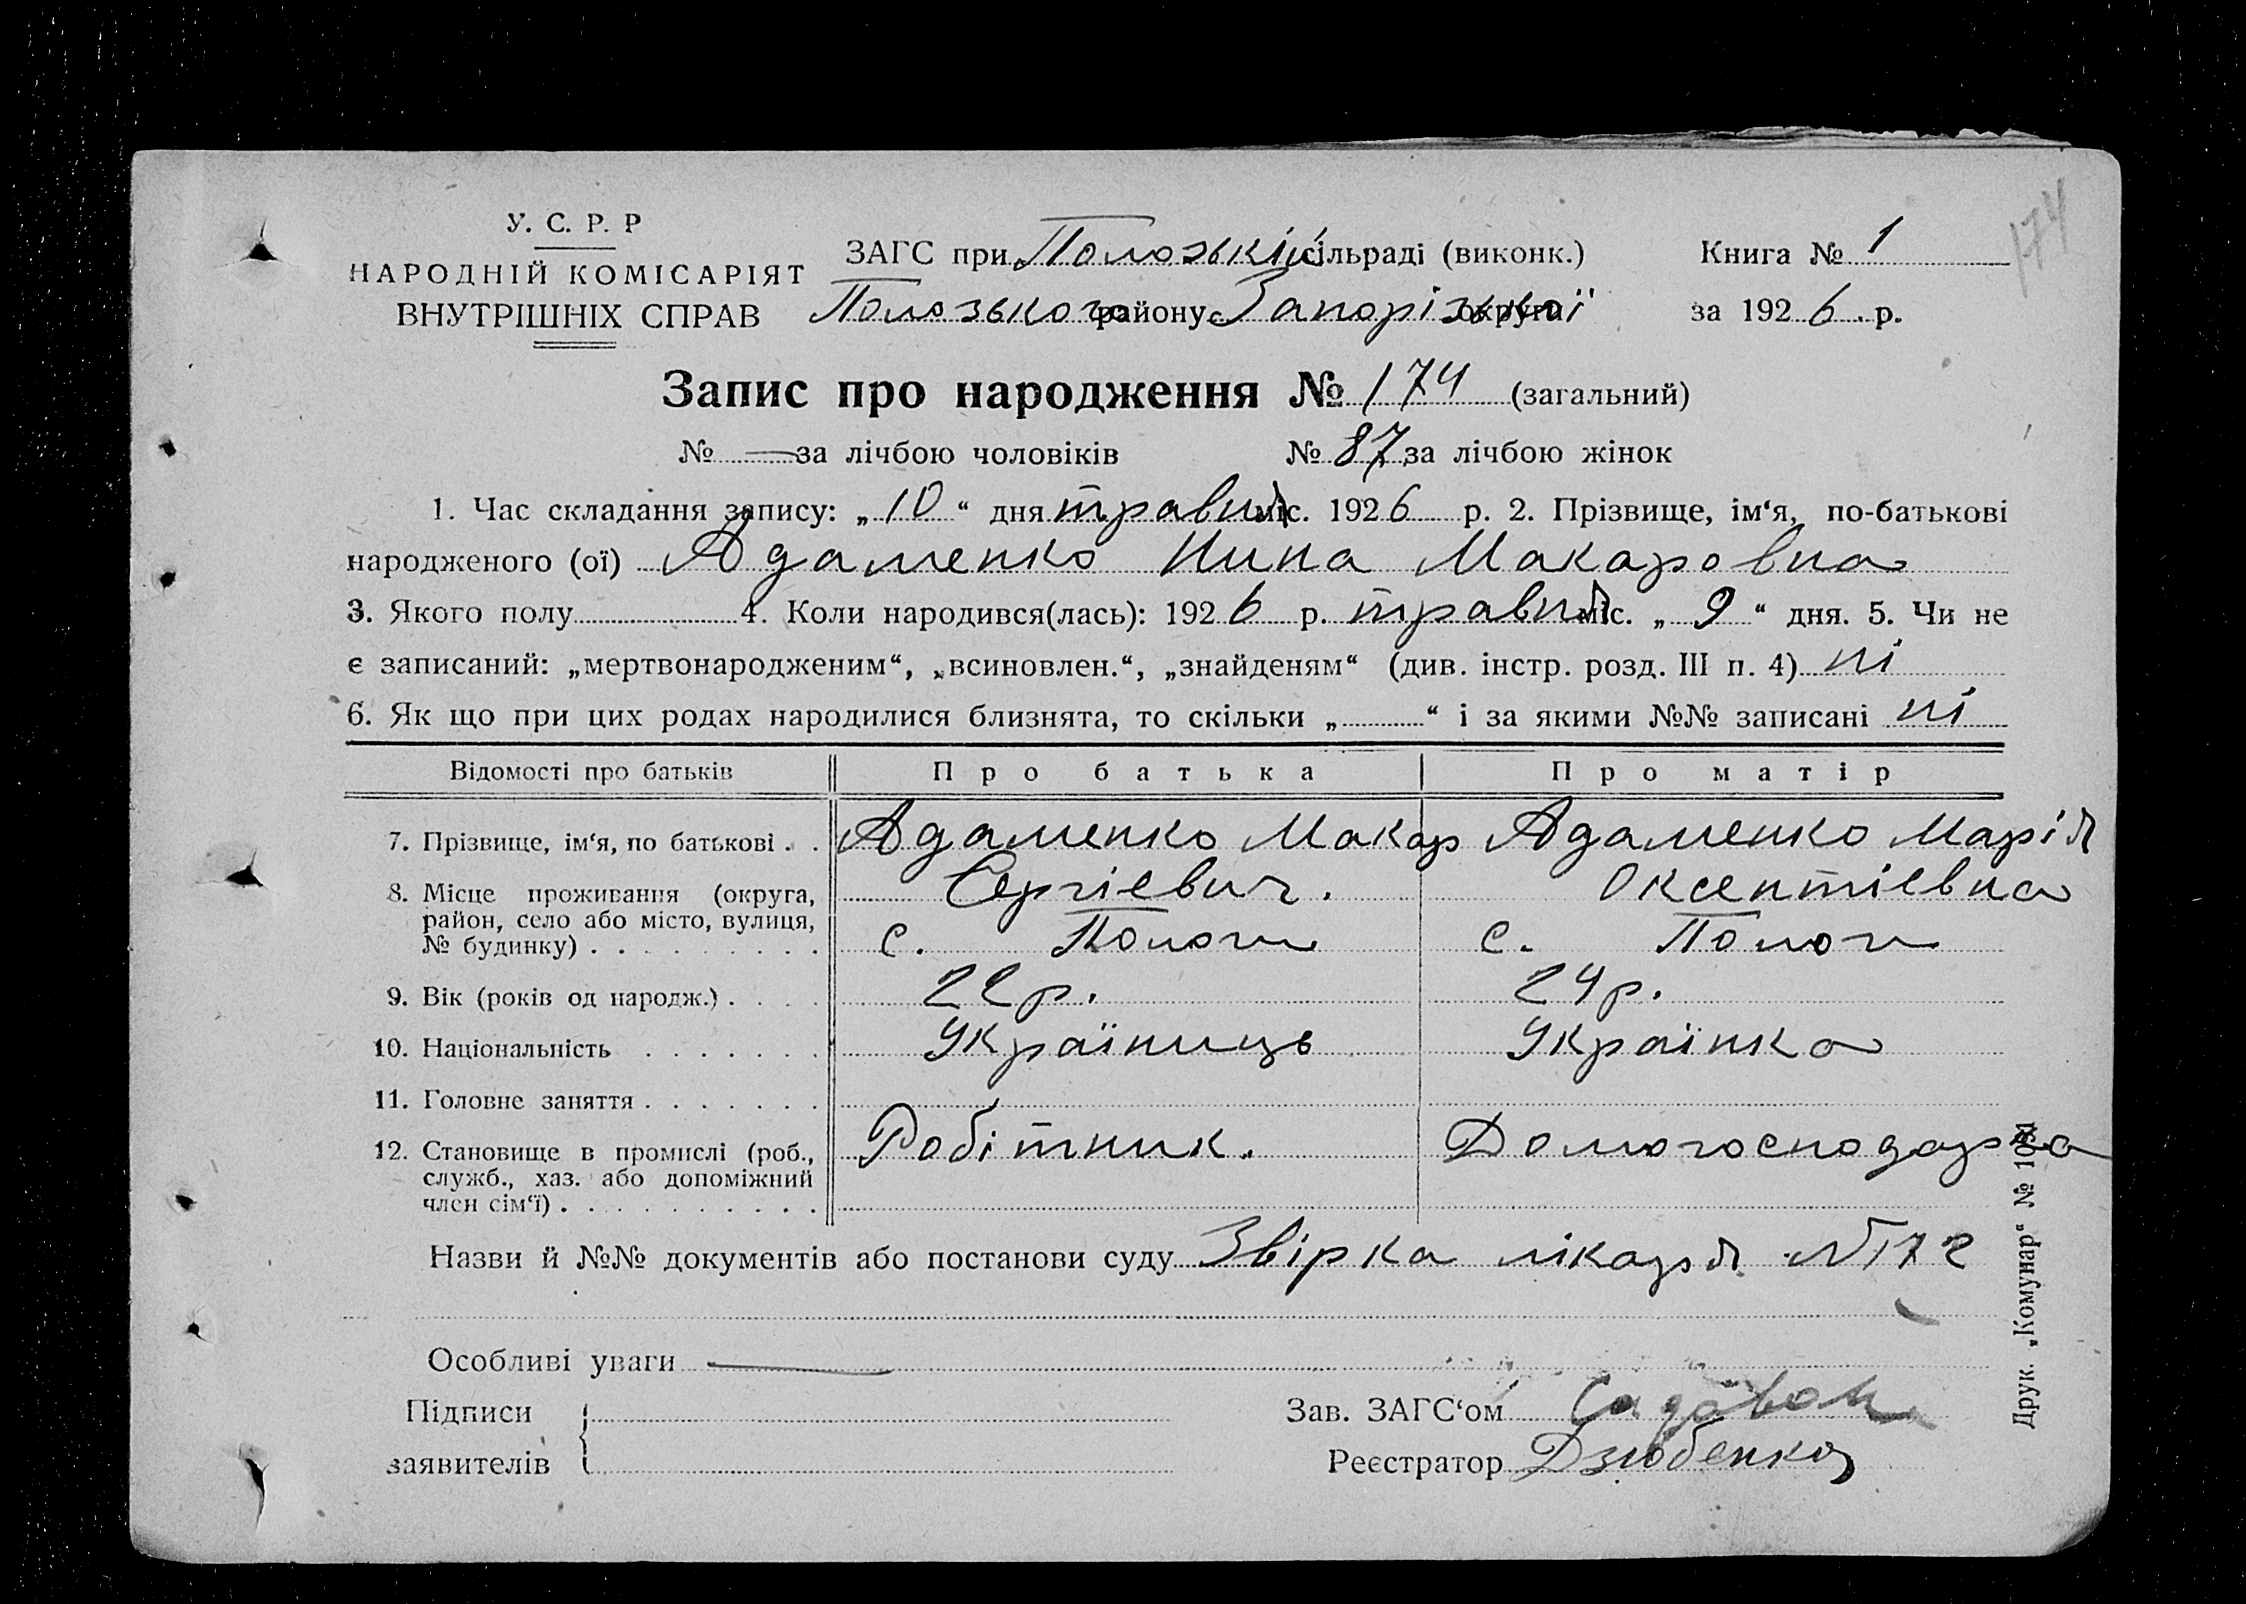 174
У. С. Р. Р
НАРОДНІЙ КОМІСАРІЯТ
ВНУТРІШНІХ СПРАВ
ЗАГС при Полозькій сільраді (виконк.)
Полозького району Запорізької округи
Книга № 1
за 1926 р.
Запис про народження № 174 (загальний)
№ — за лічбою чоловіків № 87 за лічбою жінок
1. Час складання запису: „10“ дня травня міс. 1926 р. 2. Прізвище, ім‘я, по-батькові
народженого (ої) Адаменко Нина Макаровна
3. Якого полу 4. Коли народився(лась): 1926 р. травня міс. „9“ дня. 5. Чи не
є записаний: „мертвонародженим“, „всиновлен.“, „знайденям“ (див. інстр. розд. III п. 4) ні
6. Як що при цих родах народилися близнята, то скільки „ “ і за якими №№ записані ні
Відомості про батьків Про батька Про матір
7. Прізвище, ім‘я, по батькові . . Адаменко Макар Адаменко Марія
Сергієвич. Оксентієвна
8. Місце проживання (округа,
район, село або місто, вулиця,
№ будинку) . . . . . . . . . с. Пологи с. Пологи
9. Вік (років од народж.) . . . . 22 р. 24 р.
10. Національність . . . . . . . Україниць Українка
11. Головне заняття . . . . . . .
12. Становище в промислі (роб.,
служб., хаз. або допоміжний
член сім‘ї) . . . . . . . . . . Робітник. Домогосподарка
Назви й №№ документів або постанови суду Звірка лікаря №172
Особливі уваги —
Підписи
заявителів
Зав. ЗАГС‘ом
Реєстратор Дзюбенко
Друк. „Комунар“ №